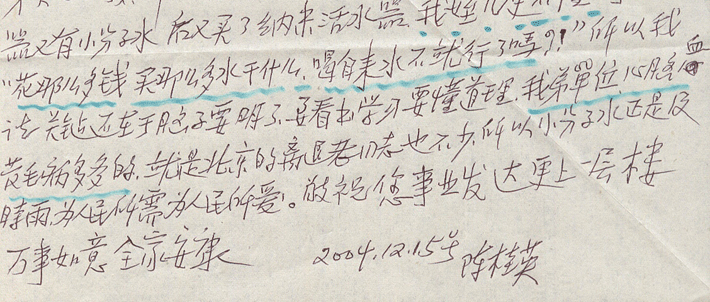 器又有小分子水 后又买了纳米活水器 我姪
"花那么多钱 买那么多水干什么,喝自来水不就行了嗎?!"所以我
说关鍵还在于脑子要明了、要看书学习要懂道理,我弟單位,心脑血
管毛病多多的,就是北京的高

老同志也不少,所以小分子水还是及
時雨,为人民所需为人民所爱。敬祝您事业发达更上一层楼
万事如意 全家安康 2004.12.15号 陈桂英